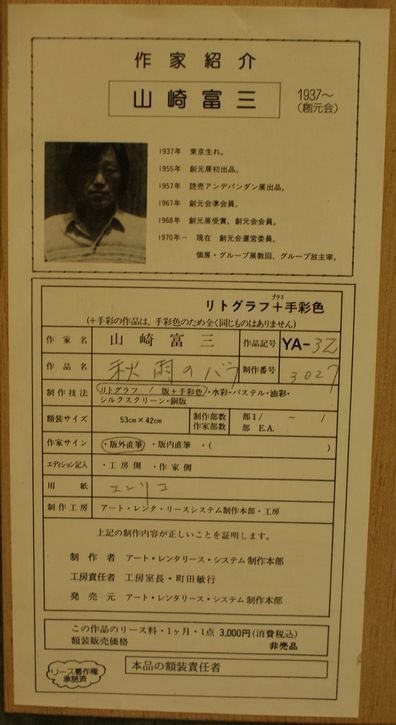 作家紹介
山崎富三
1937～
(創元会)
1937年 東京生れ。
1955年 創元展初出品。
1957年 読売アンデパンダン展出品。
1967年 創元会準会員。
1968年 創元展受賞。創元会会員。
1970年～ 現在 創元会運営委員。
個展・グループ展数回、グループ放主宰。
プラス
リトグラフ+手彩色
(+手彩の作品は、手彩色のため全く同じものはありません)
作家名 山崎富三 作品記号 YA-32
作品名 秋雨のバラ 制作番号 3027
制作技法 リトグラフ / 版+手彩色・水彩・パステル・油彩・
シルクスクリーン・銅版
額装サイズ 53cm×42cm 制作部数 部1/ ~ /
作家部数 部 E.A.
作家サイン ・版外直筆 ・版内直筆 ・( )
エディション記入 ・工房側 ・作家側
用紙
制作工房 アート・レンタ・リースシステム制作本部・工房
上記の制作内容が正しいことを証明します。
制作者 アート・レンタリース・システム制作本部
工房責任者 工房室長・町田敏行
発売元 アート・レンタリース・システム制作本部
この作品のリース料・1ヶ月・1点 3,000円(消費税込)
額装販売価格 非売品
リース著作権
承諾済
本品の額装責任者